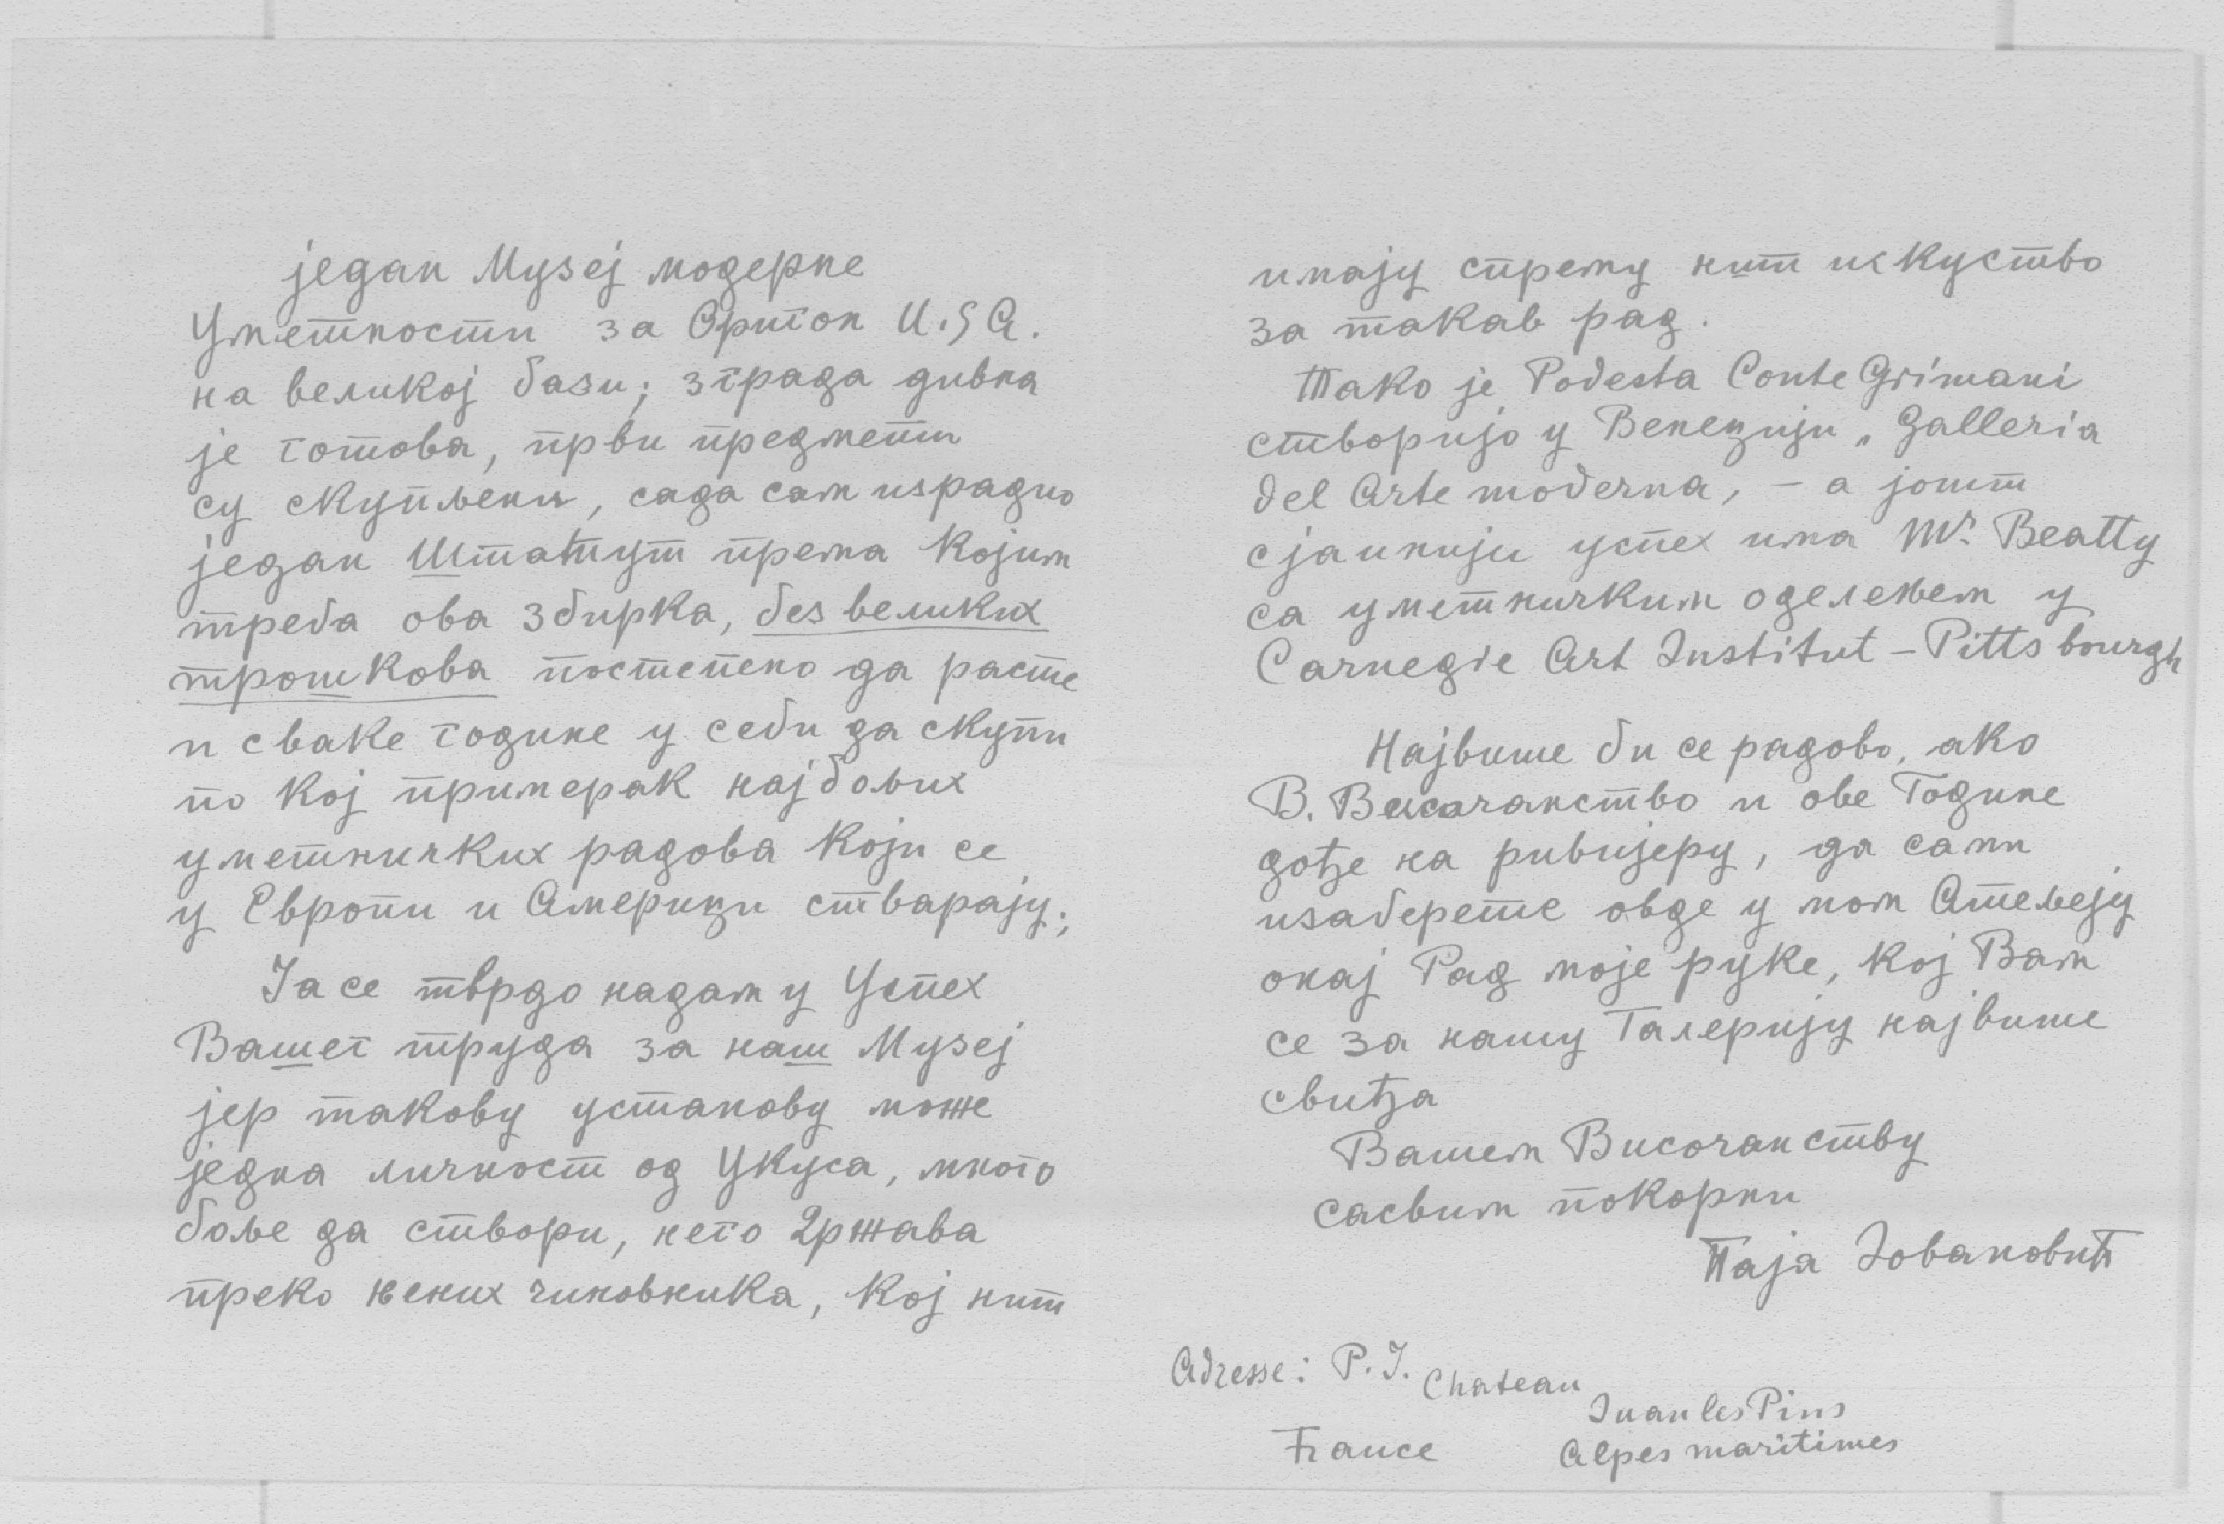 један Мусеј модерне
Уметности за Оригон U.S.A.
на великој бази; зграда дивна
је готова, први предмети
су скупљени, сада сам израдио
један Штатут према којим
треба ова збирка, без великих
трошкова постепено да расте
и сваке године у себи да скупи
по кој примерак најбољих
уметничких радова који се
у Европи и Америци стварају;
Ја се тврдо надам у Успех
Вашег труда за наш Мусеј
јер такову установу може
једна личност од Укуса, много
боље да створи, него Држава
преко њених чиновника, кој нит
имају спрему нит искуство
за такав рад.
Тако је Podesta Conte Grimani
створијо у Венецији „Galleria
del Arte moderna, – а јошт
сјаинији успех има Mr. Beatty
са уметничким оделењем у
Carnegie Art Institut – Pittsbourgh
Највише би се радово, ако
В. Височанство и ове Године
дође на ривијеру, да сами
изаберете овде у мом Атељеју
онај Рад моје руке, кој Вам
се за нашу Галерију највише
свиђа
Вашем Височанству
сасвим покорни
Паја Јовановић
Adresse: P.J. Chateau
Juan les Pins
France Alpes maritimes